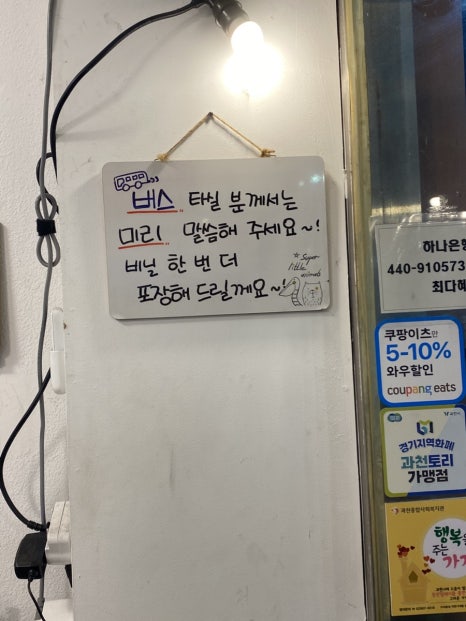 버스 타실 분께서는
미리 말씀해 주세요~!
비닐 한 번 더
포장해 드릴께요~!
Super
little
animals
하나은행
440-910573
최다혜
쿠팡이츠만
5-10%
와우할인
coupang eats
경기지역화폐
과천토리
가맹점
과천종합사회복지관
행복을
주는
가게